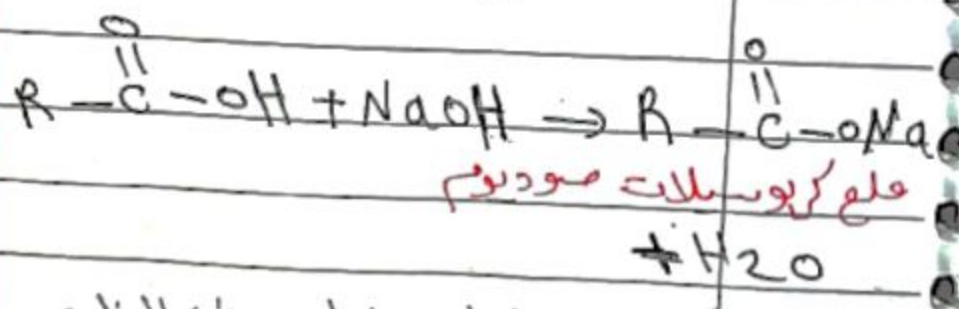 O O
|| ||
R - C - OH + NaOH → R - C - ONa
ملح كربوسيلات صوديوم
+ H2O